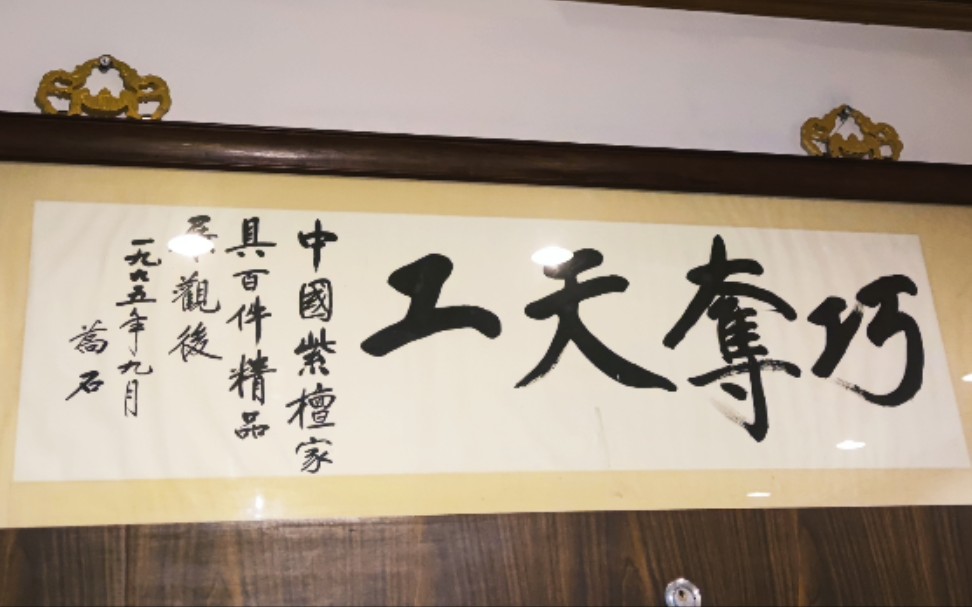 巧奪天工
中國紫檀家
具百件精品
展觀後
一九九五年九月
喬石